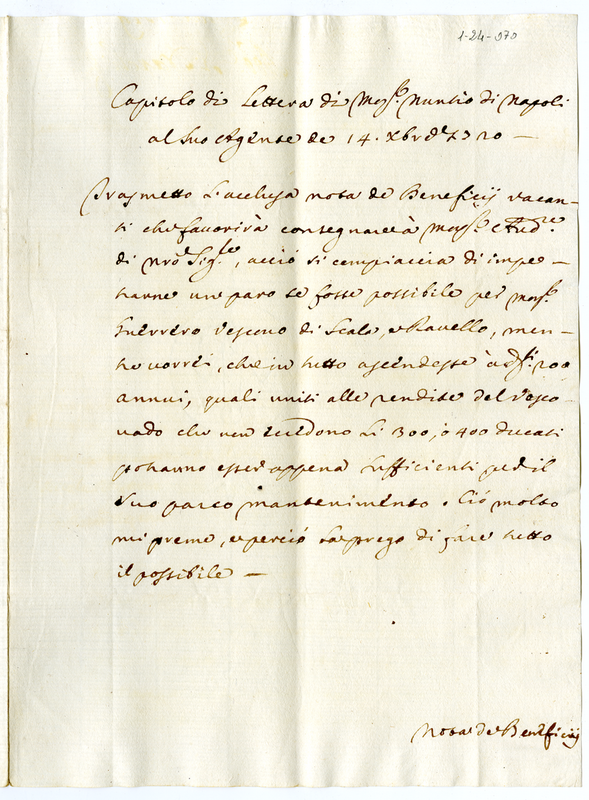 1-24-070
Capitolo di Lettera di Monsr. Nuntio di Napoli
al suo Agente de 14. Xbre 1720 —
Trasmetto l'acclusa nota de Beneficij vacan-
ti che favorirà consegnare à Monsr. Aud.re
di Nro Sig.re, acciò si compiaccia di impe-
trarne un paro se fosse possibile per Monsr.
Guerrero Vescovo di Scala, e Ravello, men-
tre vorrei, che in tutto ascendesse à 200
annui, quali uniti alle rendite del Vesco-
vado che non eccedono li 300, ò 400 ducati
potranno esser appena sufficienti per il
suo parco mantenimento. Ciò molto
mi preme, e perciò la prego di fare tutto
il possibile —
Nota de Beneficij